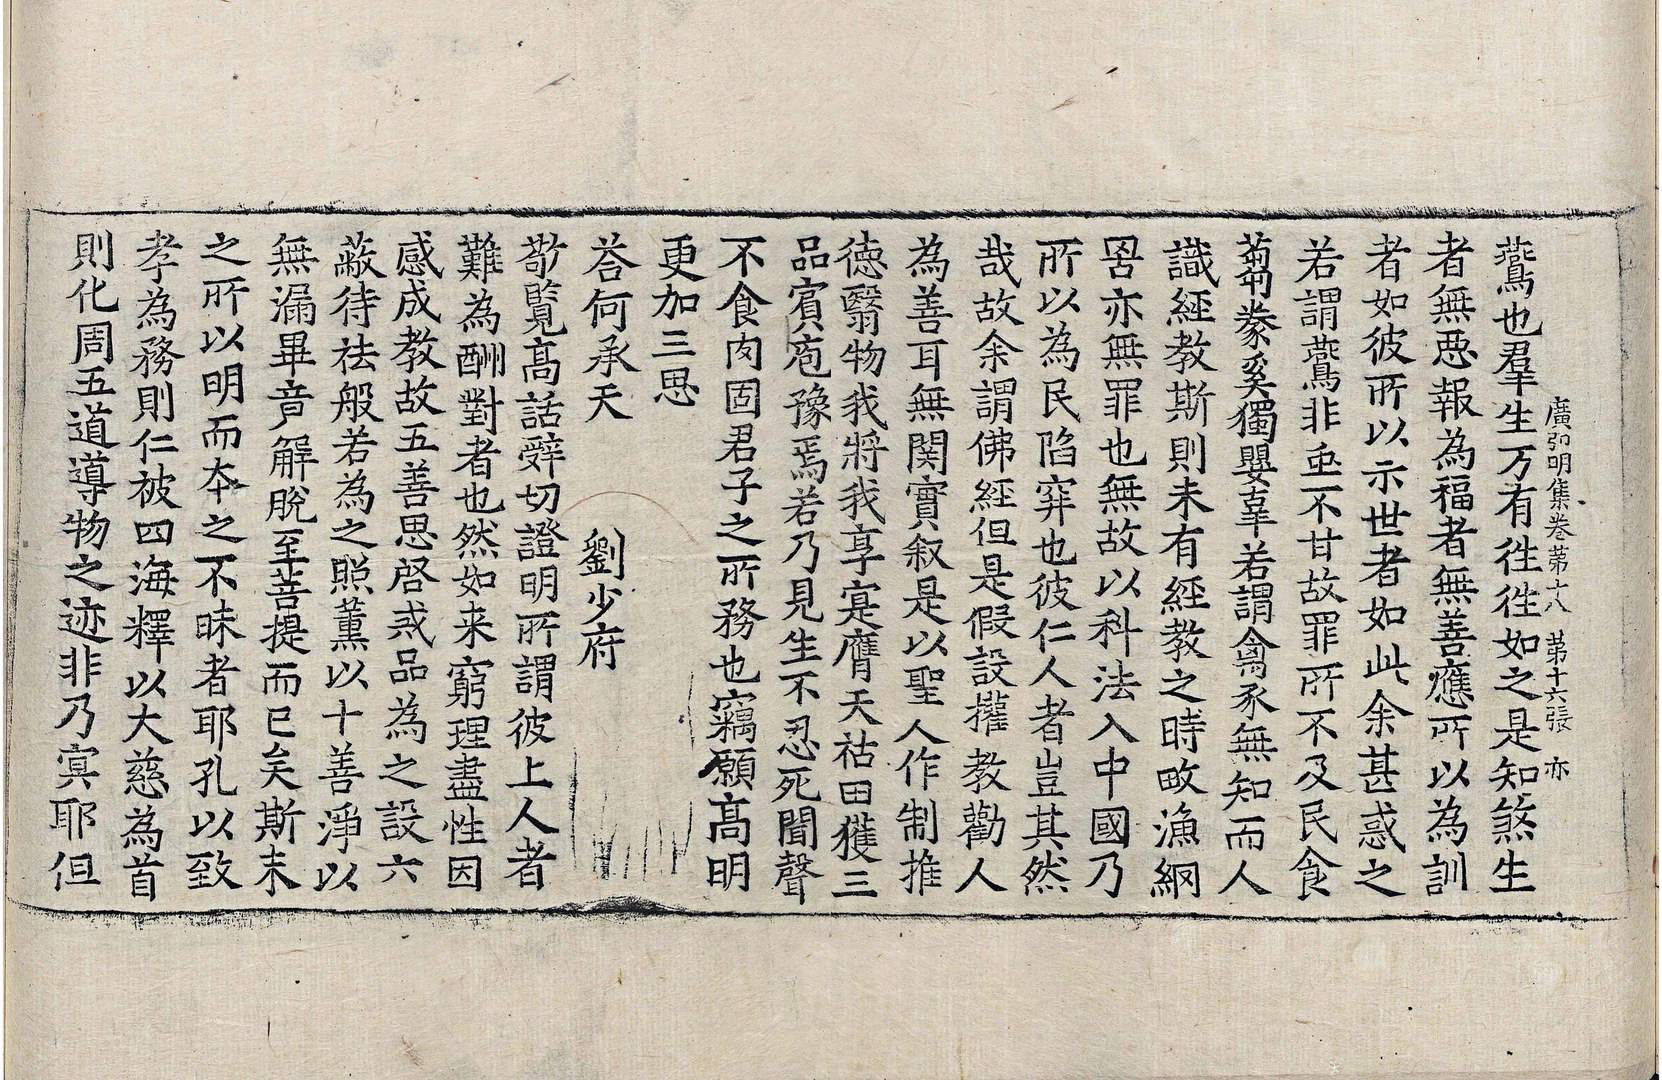 廣弘明集卷第十八 第十六張 亦
鷰也羣生万有往往如之是知煞生
者無惡報為福者無善應所以為訓
者如彼所以示世者如此余甚惑之
若謂鷰非蟲不甘故罪所不及民食
蒭豢奚獨嬰辜若謂禽豕無知而人
識經教斯則未有經教之時畋漁網
罟亦無罪也無故以科法入中國乃
所以為民陷穽也彼仁人者豈其然
哉故余謂佛經但是假設權教勸人
為善耳無関實叙是以聖人作制推
德翳物我將我享寔膺天祜田獲三
品賓庖豫焉若乃見生不忍死聞聲
不食肉固君子之所務也竊願髙明
更加三思
荅何承天 劉少府
敬覽髙話辭切證明所謂彼上人者
難為酬對者也然如来窮理盡性因
感成教故五善思啓戎品為之設六
蔽待祛般若為之照薰以十善淨以
無漏畢竟解脫至菩提而已矣斯末
之所以明而本之不昧者耶孔以致
孝為務則仁被四海釋以大慈為首
則化周五道導物之迹非乃冥耶但